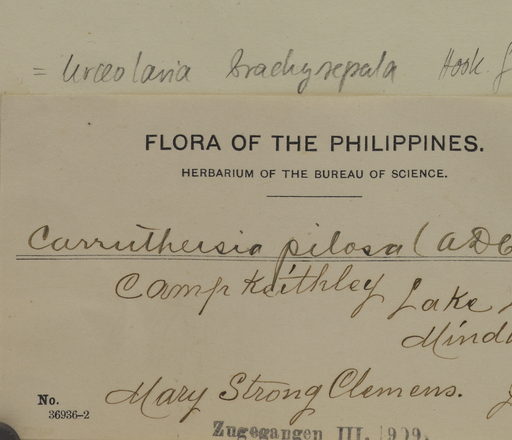 = Urceolaria brachysepala Hook. f
FLORA OF THE PHILIPPINES.
HERBARIUM OF THE BUREAU OF SCIENCE.
Carruthersia pilosa (A DC
Camp Keithley Lake
Mind
Mary Strong Clemens.
No.
36936-2
Zugegangen III. 1909.